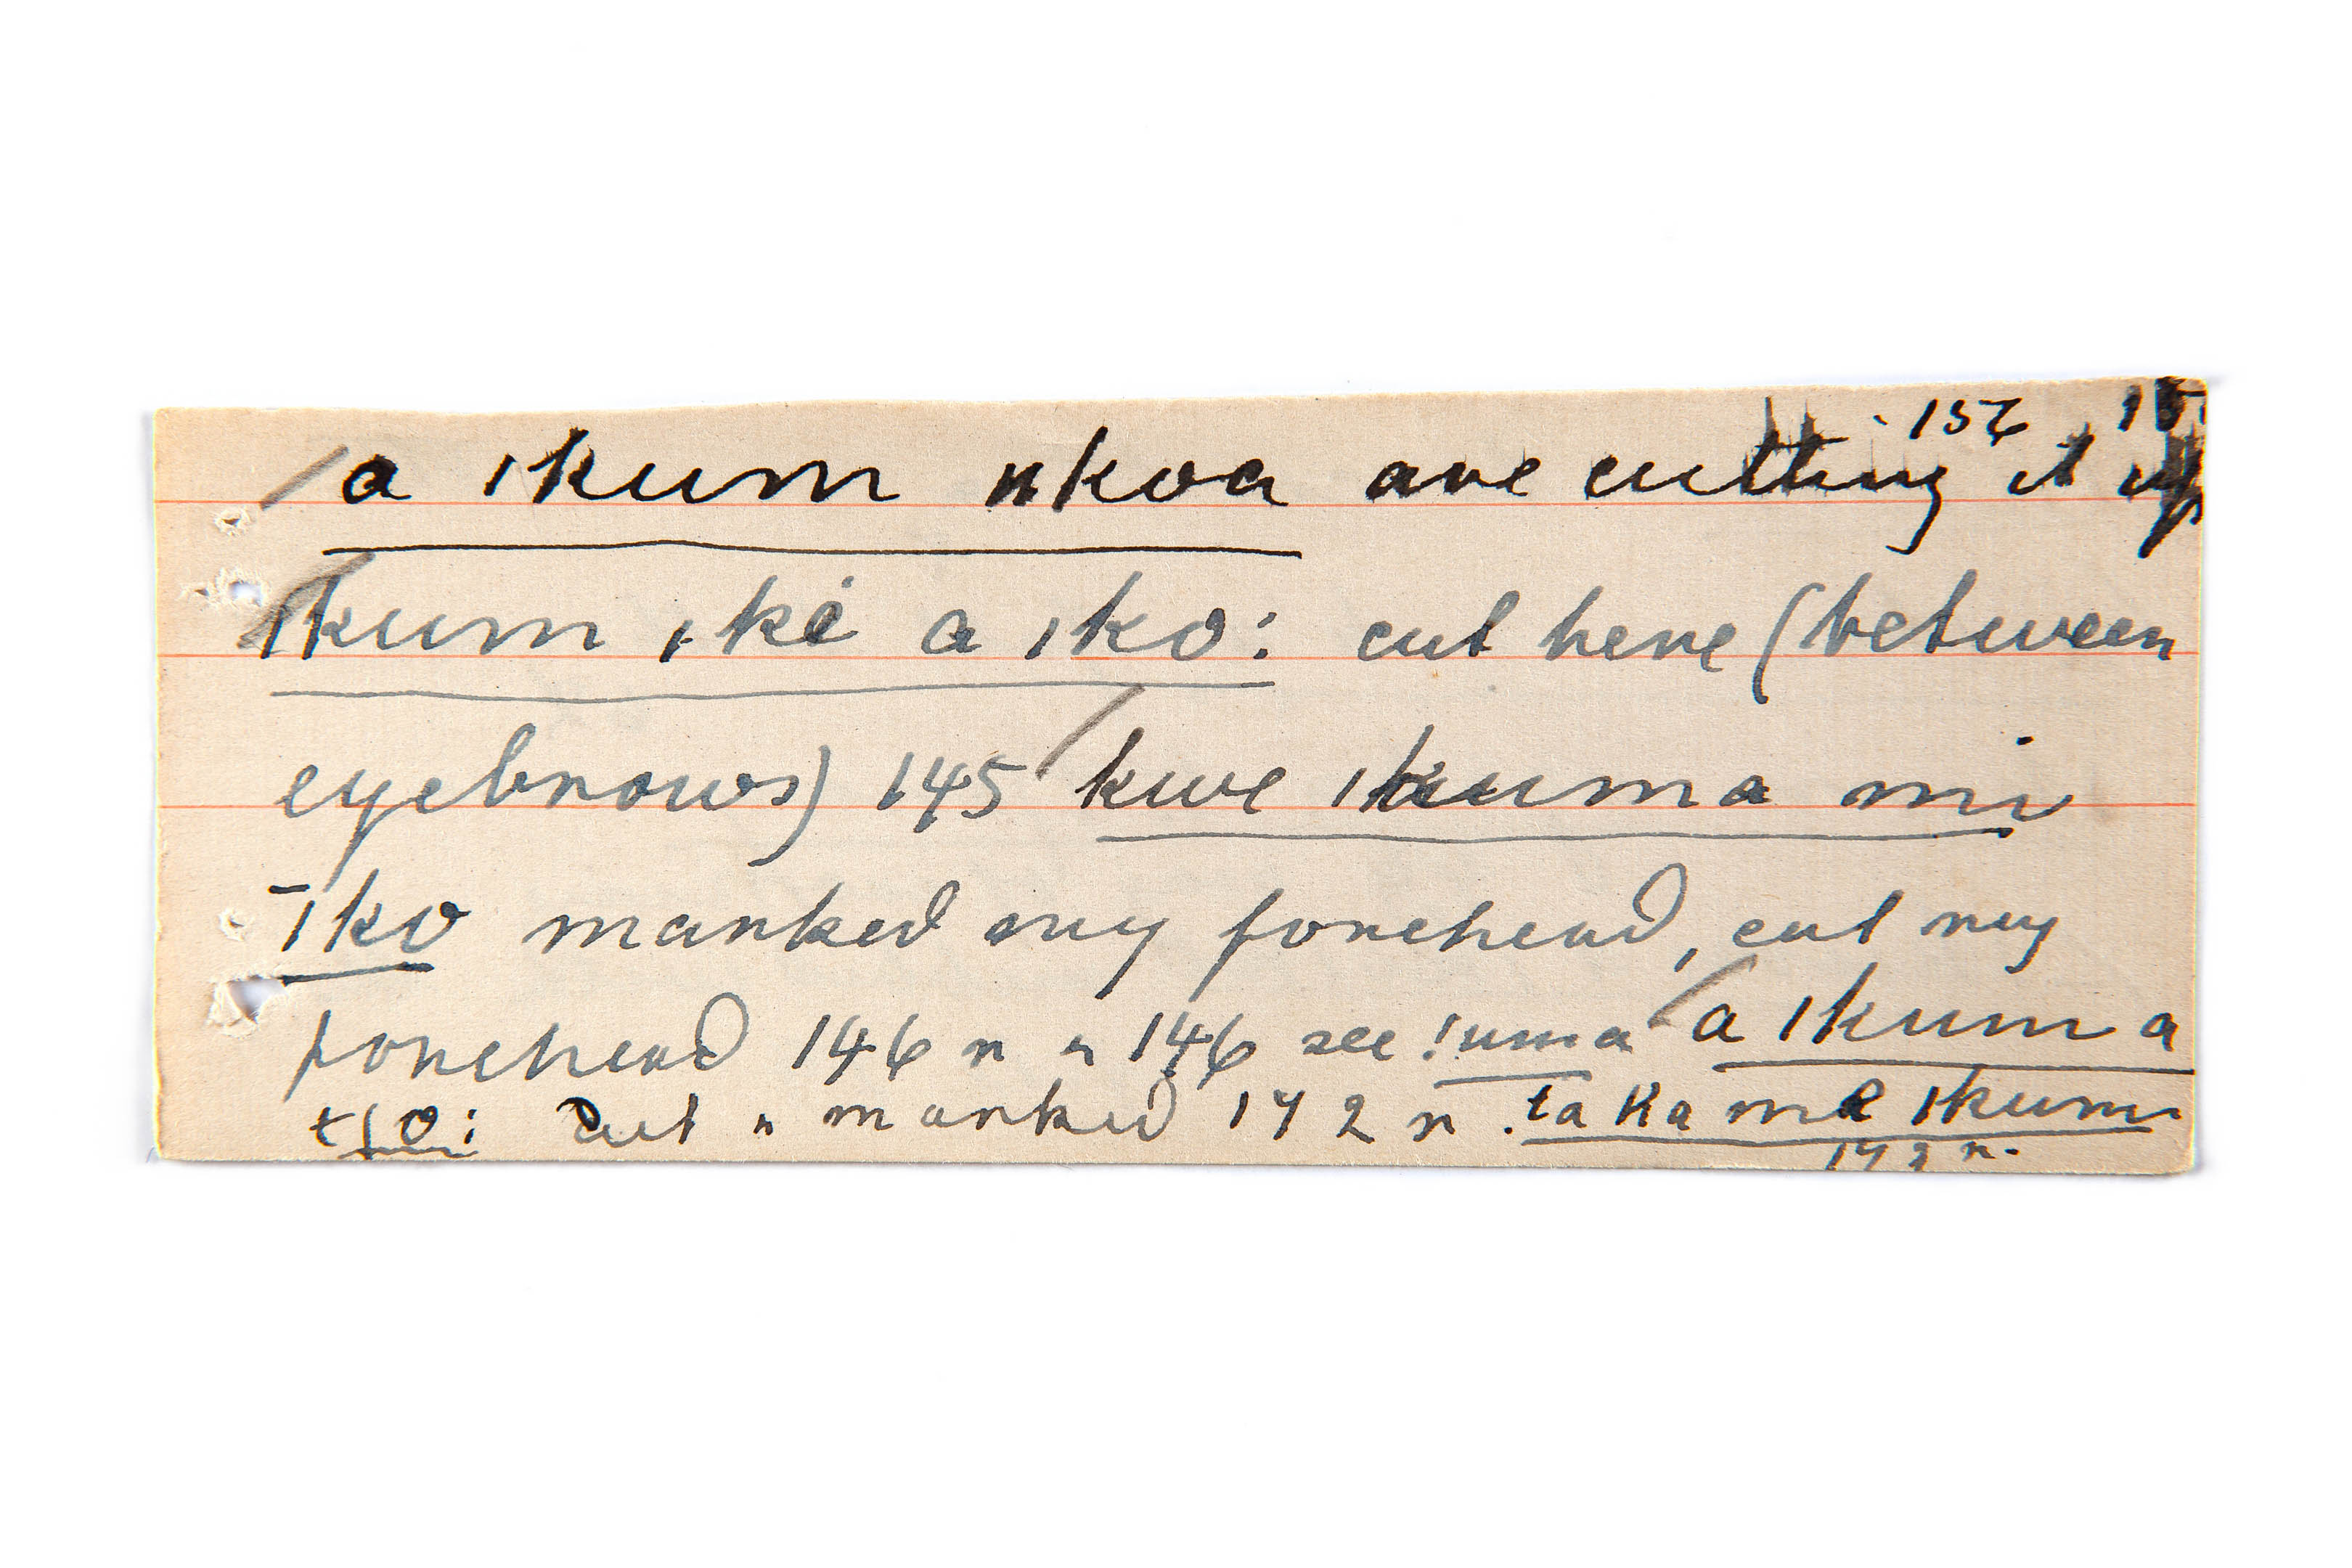 a ıkum nkoa are cutting it up 156
ıkum ıke a ıko: cut here (between
eyebrows) 145 kwe ıkuma mi
ıko marked my forehead, cut my
forehead 146 n " 146 see !uma a ıkum a
cut " marked 172 n . taka me ıkum
172 n.